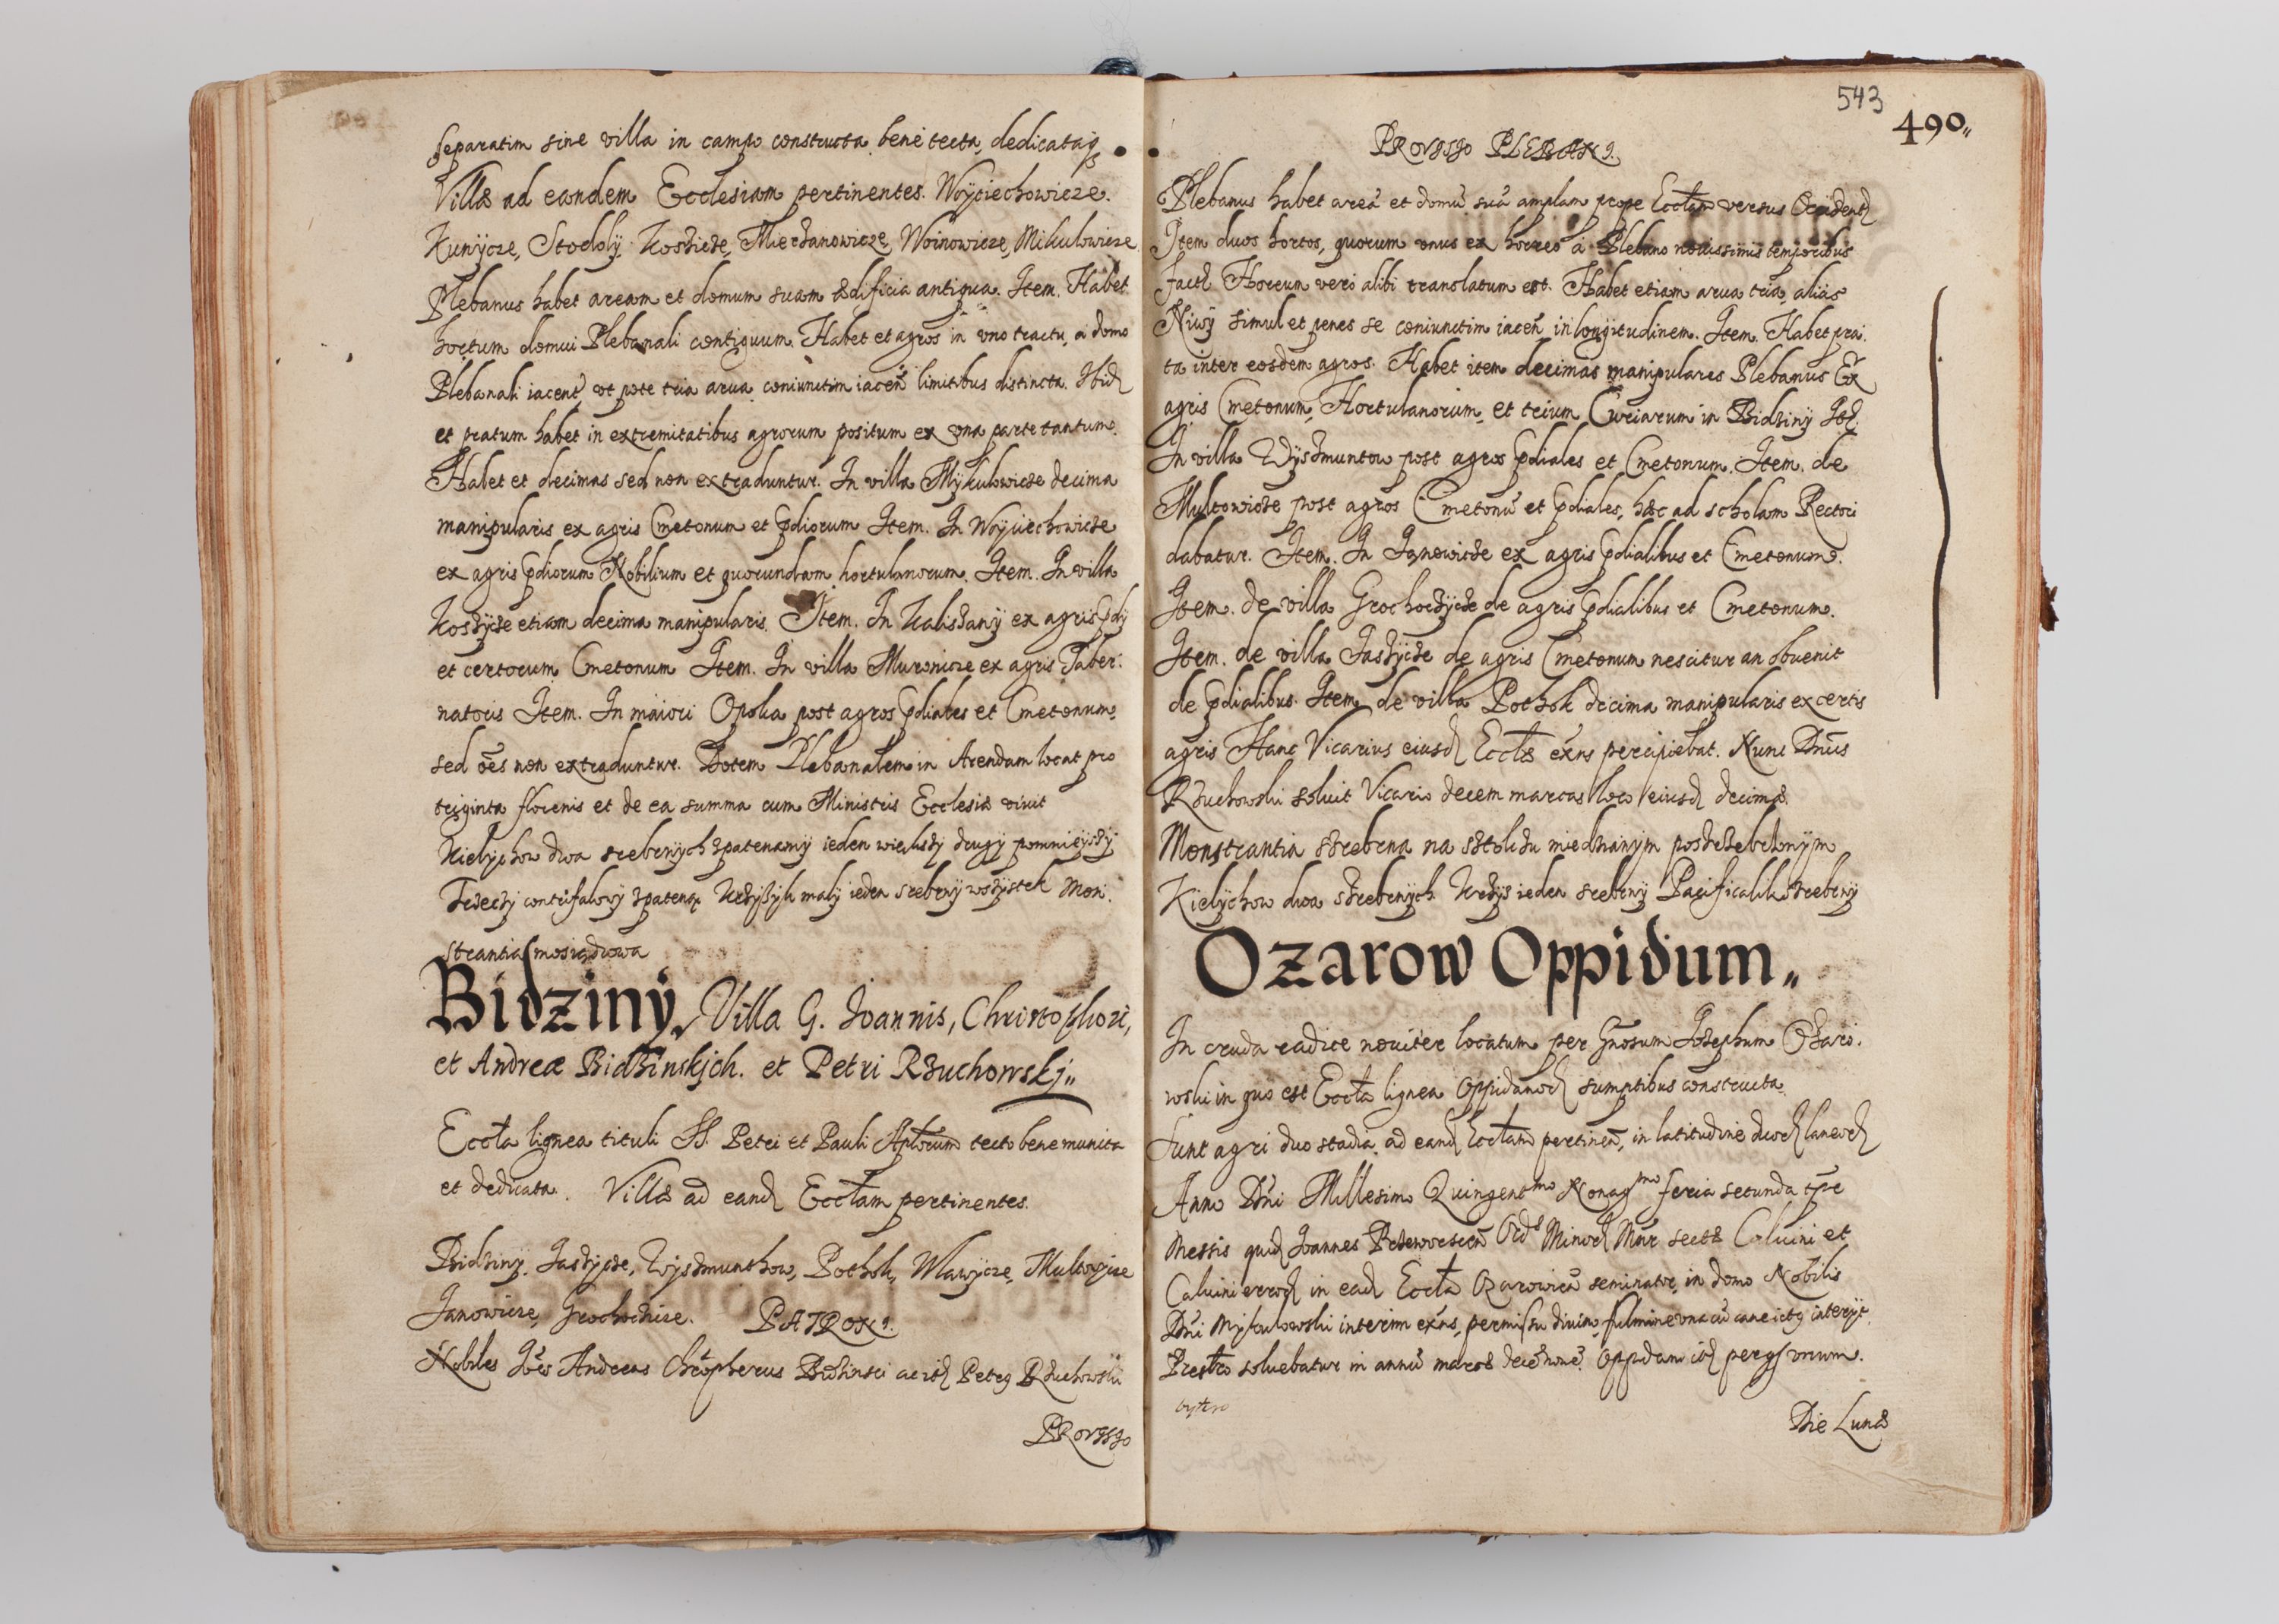 separatim sine villa in campo constructa benè tecta, dedicataq3
Villæ ad eandem Ecclesiam pertinentes. Woÿciechowicze.
Kunÿcze, Stodolÿ, Koszicze, Mierzanowicze, Woinowicze, Mikulowicze
Plebanus habet aream et domum suam ædificia antiqua. Item. Habet
hortum domui Plebanali contiguum. Habet et agros in vno tractu, a domo
Plebanali iacent, vt pote tria arua coniunctim iaceñ limitibus distincta. Ibid
et pratum habet in extremitatibus agrorum positum ex vna parte tantum.
Habet et decimas sed non extraduntur. In villa Mÿkulowicze decima
manipularis ex agris Cmetonum et prdiorum Item. In Woÿciechowicze
ex agris prdiorum Nobilium et quorundam hortulanorum. Item. In villa
Koszÿce etiam decima manipularis. Item. In Kaliszanÿ ex agris prdÿ
et certorum Cmetonum Item. In villa Muronicze ex agris Taber:
natoris Item. In maiori Opolia post agros prdiales et Cmetonum
sed oẽs non extraduntur. Dotem Plebanalem in Arendam locat pro
triginta florenis et de ea summa cum Ministris Ecclesiæ viuit
Kielÿchow dwa srebrnÿch zpatenamÿ ieden wiekszÿ drugÿ pomnieÿszÿ
Trzeczÿ contrifalowÿ zpateną Krzÿżÿk małÿ ieden srebrnÿ wszÿstek Mon:
strantia mosiądzowa
Bidzinÿ, Villa G. Joannis, Christophori,
et Andreæ Bidzinskich. et Petri Rzuchowskj„
Eccła lignea tituli SS. Petri et Pauli Apłorum tecto bene munita
et dedicata. Villæ ad eand Eccłam pertinentes.
Bidzinÿ, Jaszÿcze, Wÿszmunthow, Pothok, Wlawÿcze, Multowicze
Janowicze, Grochocicze. PATRONI.
Nobiles Joẽs Andreas Chrõpherus Bidzinsci ac itd Petrg Rzuchowski
PROVISIO
543
490„
PROVISIO PLEBANI.
Plebanus habet areã et domũ suã amplam prope Eccłam versus Occident
Item duos hortos, quorum vnus ex horreo à Plebano nouissimis temporibus
fact Horreum verò alibi translatum est. Habet etiam arua tria, aliàs
Niwÿ simul et penes se coniunctim iaceñ in longitudinem. Item. Habet pra:
ta inter eosdem agros. Habet item decimas manipulares Plebanus Ex
agris Cmetonum, Hortulanorum, et trium Curiarum in Bidzinÿ It
In villa Wÿszmuntow post agros prdiales et Cmetonum. Item. de
Multowicze post agros Cmetonũ et prdiales, hæc ad scholam Rectori
dabatur. Item. In Janowicze ex agris prdialibus et Cmetonum.
Item. de villa Grochoczÿcze de agris prdialibus et Cmetonum.
Item. de villa Jaszÿcze de agris Cmetonum nescitur an obuenit
de prdialibus. Item de villa Pothok decima manipularis ex certis
agris Hanc Vicarius eiusd Eccłæ exñs percipiebat. Nunc Dnũs
Rzuchowski soluit Vicario decem marcas loco eiusd decimæ.
Monstrantia srebrna na sztolczu miedzianÿm
Kielÿchow dwa srebrnÿch Krzÿż ieden srebrnÿ Pacificalik srebrnÿ
Ozarow Oppidum„
In cruda radice nouiter locatum per Gñosum Josephum Ozaro:
wski in quo est Eccła lignea Oppidanor sumptibus constructa.
Sunt agri duo stadia, ad eand Eccłam pertineñ, in latitudine duor laneor
Anno Dñi Millesimo Quingentmo Nonagmo feria secunda tp̃e
Messis quid Joannes Ord Minor Mnr sectæ Caluini et
Caluini error in ead Eccła Ozarowieñ seminator, in domo Nobilis
Dñi Mÿkulowski interim exñs, permissu diuino, fulmine vna cũ cane ictg interÿt.
Presbro soluebatur in annũ marcæ Oppidani
bytero
Die Lunæ